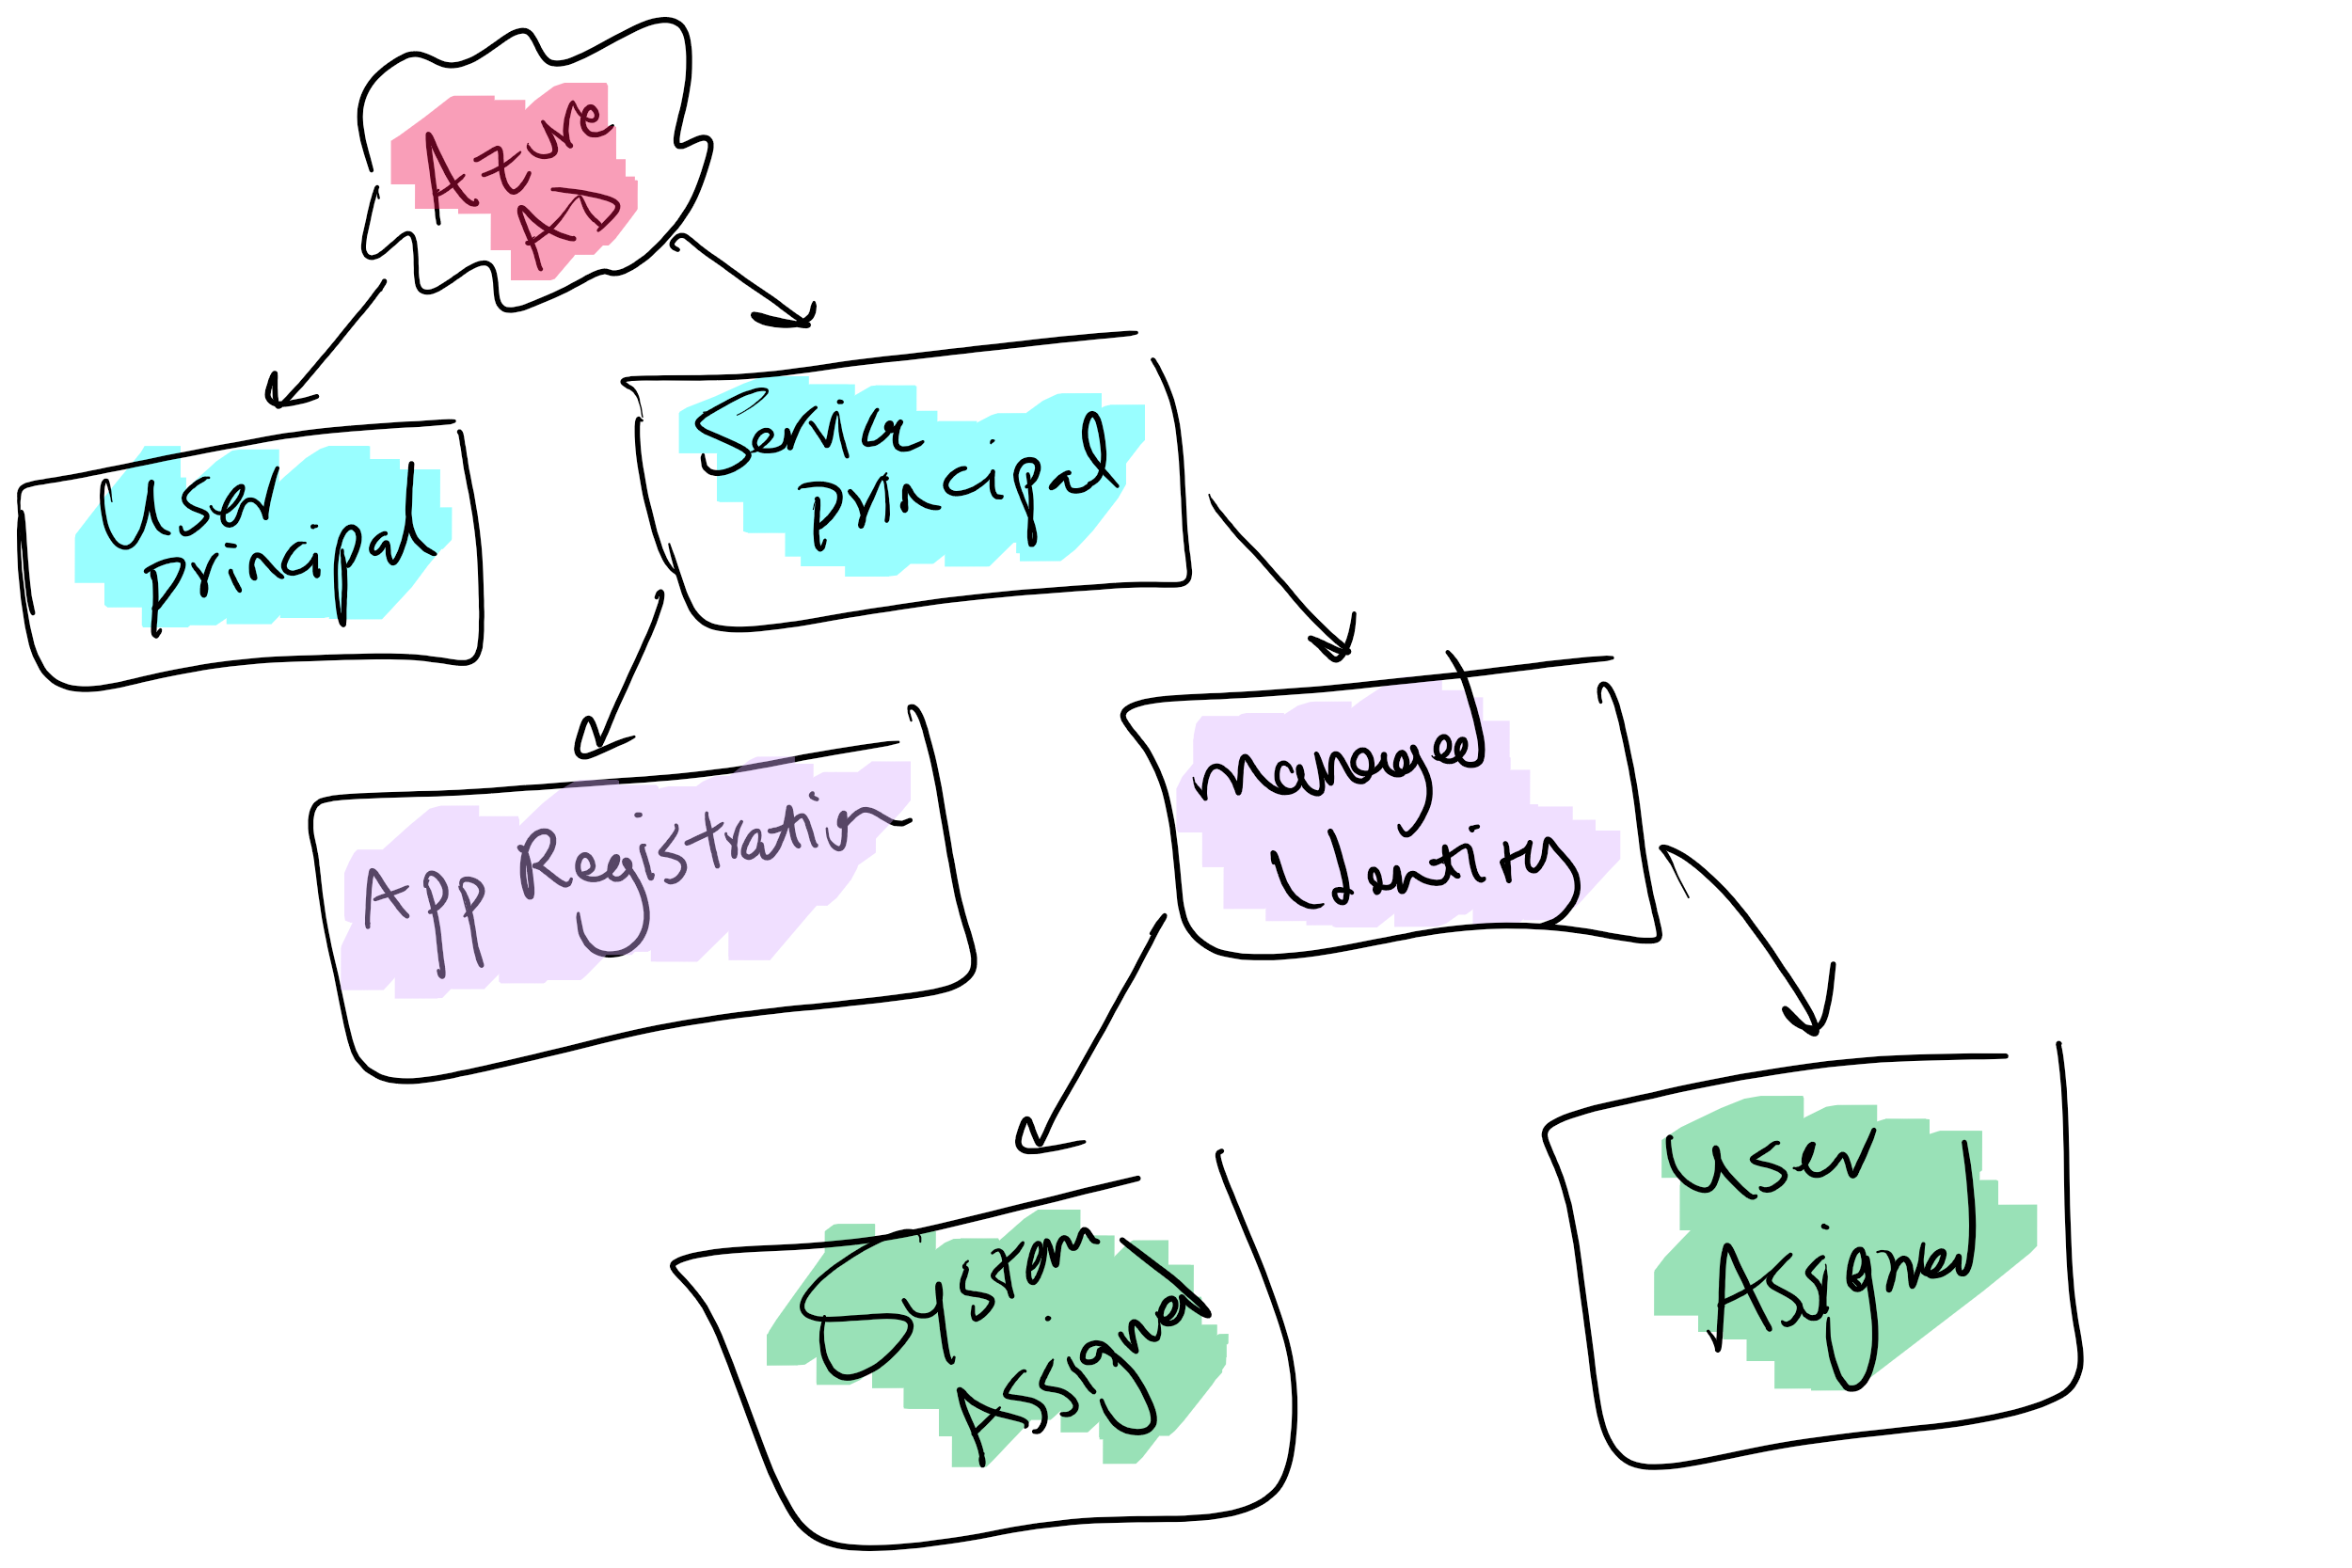 Azure
AD
User
Principal
Service
Principal
App Registration
Managed
Identity
System
Assigned
User
Assigned